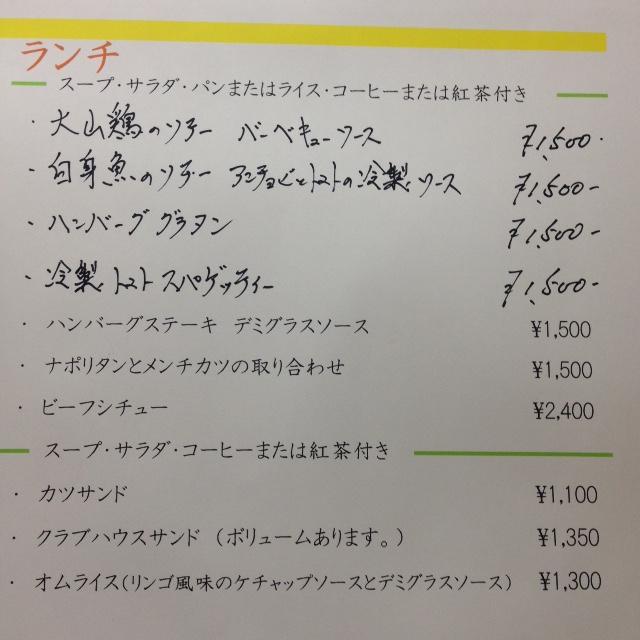 ランチ
スープ・サラダ・パンまたはライス・コーヒーまたは紅茶付き
・大山鶏のソテー バーベキューソース ¥1,500-
・白身魚のソテー アンチョビとトマトの冷製ソース ¥1,500-
・ハンバーググラタン ¥1,500-
・冷製トマトスパゲッティー ¥1,500-
・ハンバーグステーキ デミグラスソース ¥1,500
・ナポリタンとメンチカツの取り合わせ ¥1,500
・ビーフシチュー ¥2,400
スープ・サラダ・コーヒーまたは紅茶付き
・カツサンド ¥1,100
・クラブハウスサンド（ボリュームあります。） ¥1,350
・オムライス（リンゴ風味のケチャップソースとデミグラスソース） ¥1,300